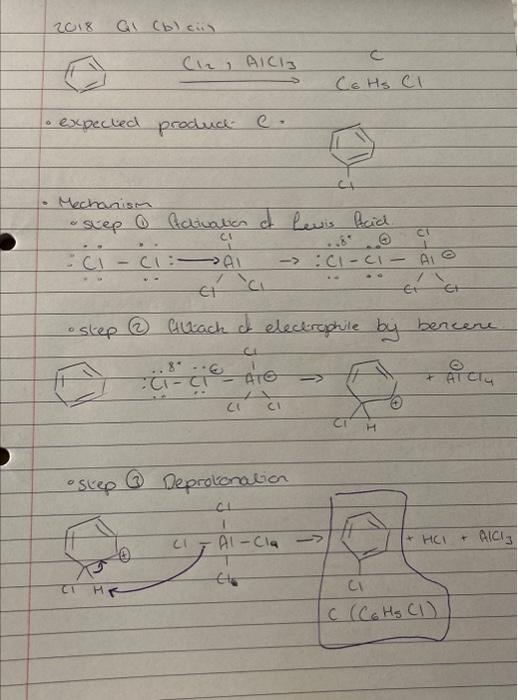 2018 Q1 (b) (ii)
Cl2, AlCl3 C
C6H5Cl
• expected product C.
Cl
• Mechanism
• step ① Activation of Lewis Acid
Cl
:Cl – Cl: → Al → :Cl – Cl – Al ⊖
δ+ ⊕ Cl
Cl Cl Cl Cl
• step ② Attack of electrophile by benzene
Cl
δ+ ⊕
:Cl – Cl – Al ⊖ → ⊕ + ⊖AlCl4
Cl Cl Cl H
• step ③ Deprotonation
Cl
⊕ Cl – Al – Cl → + HCl + AlCl3
Cl H Cl Cl
C (C6H5Cl)